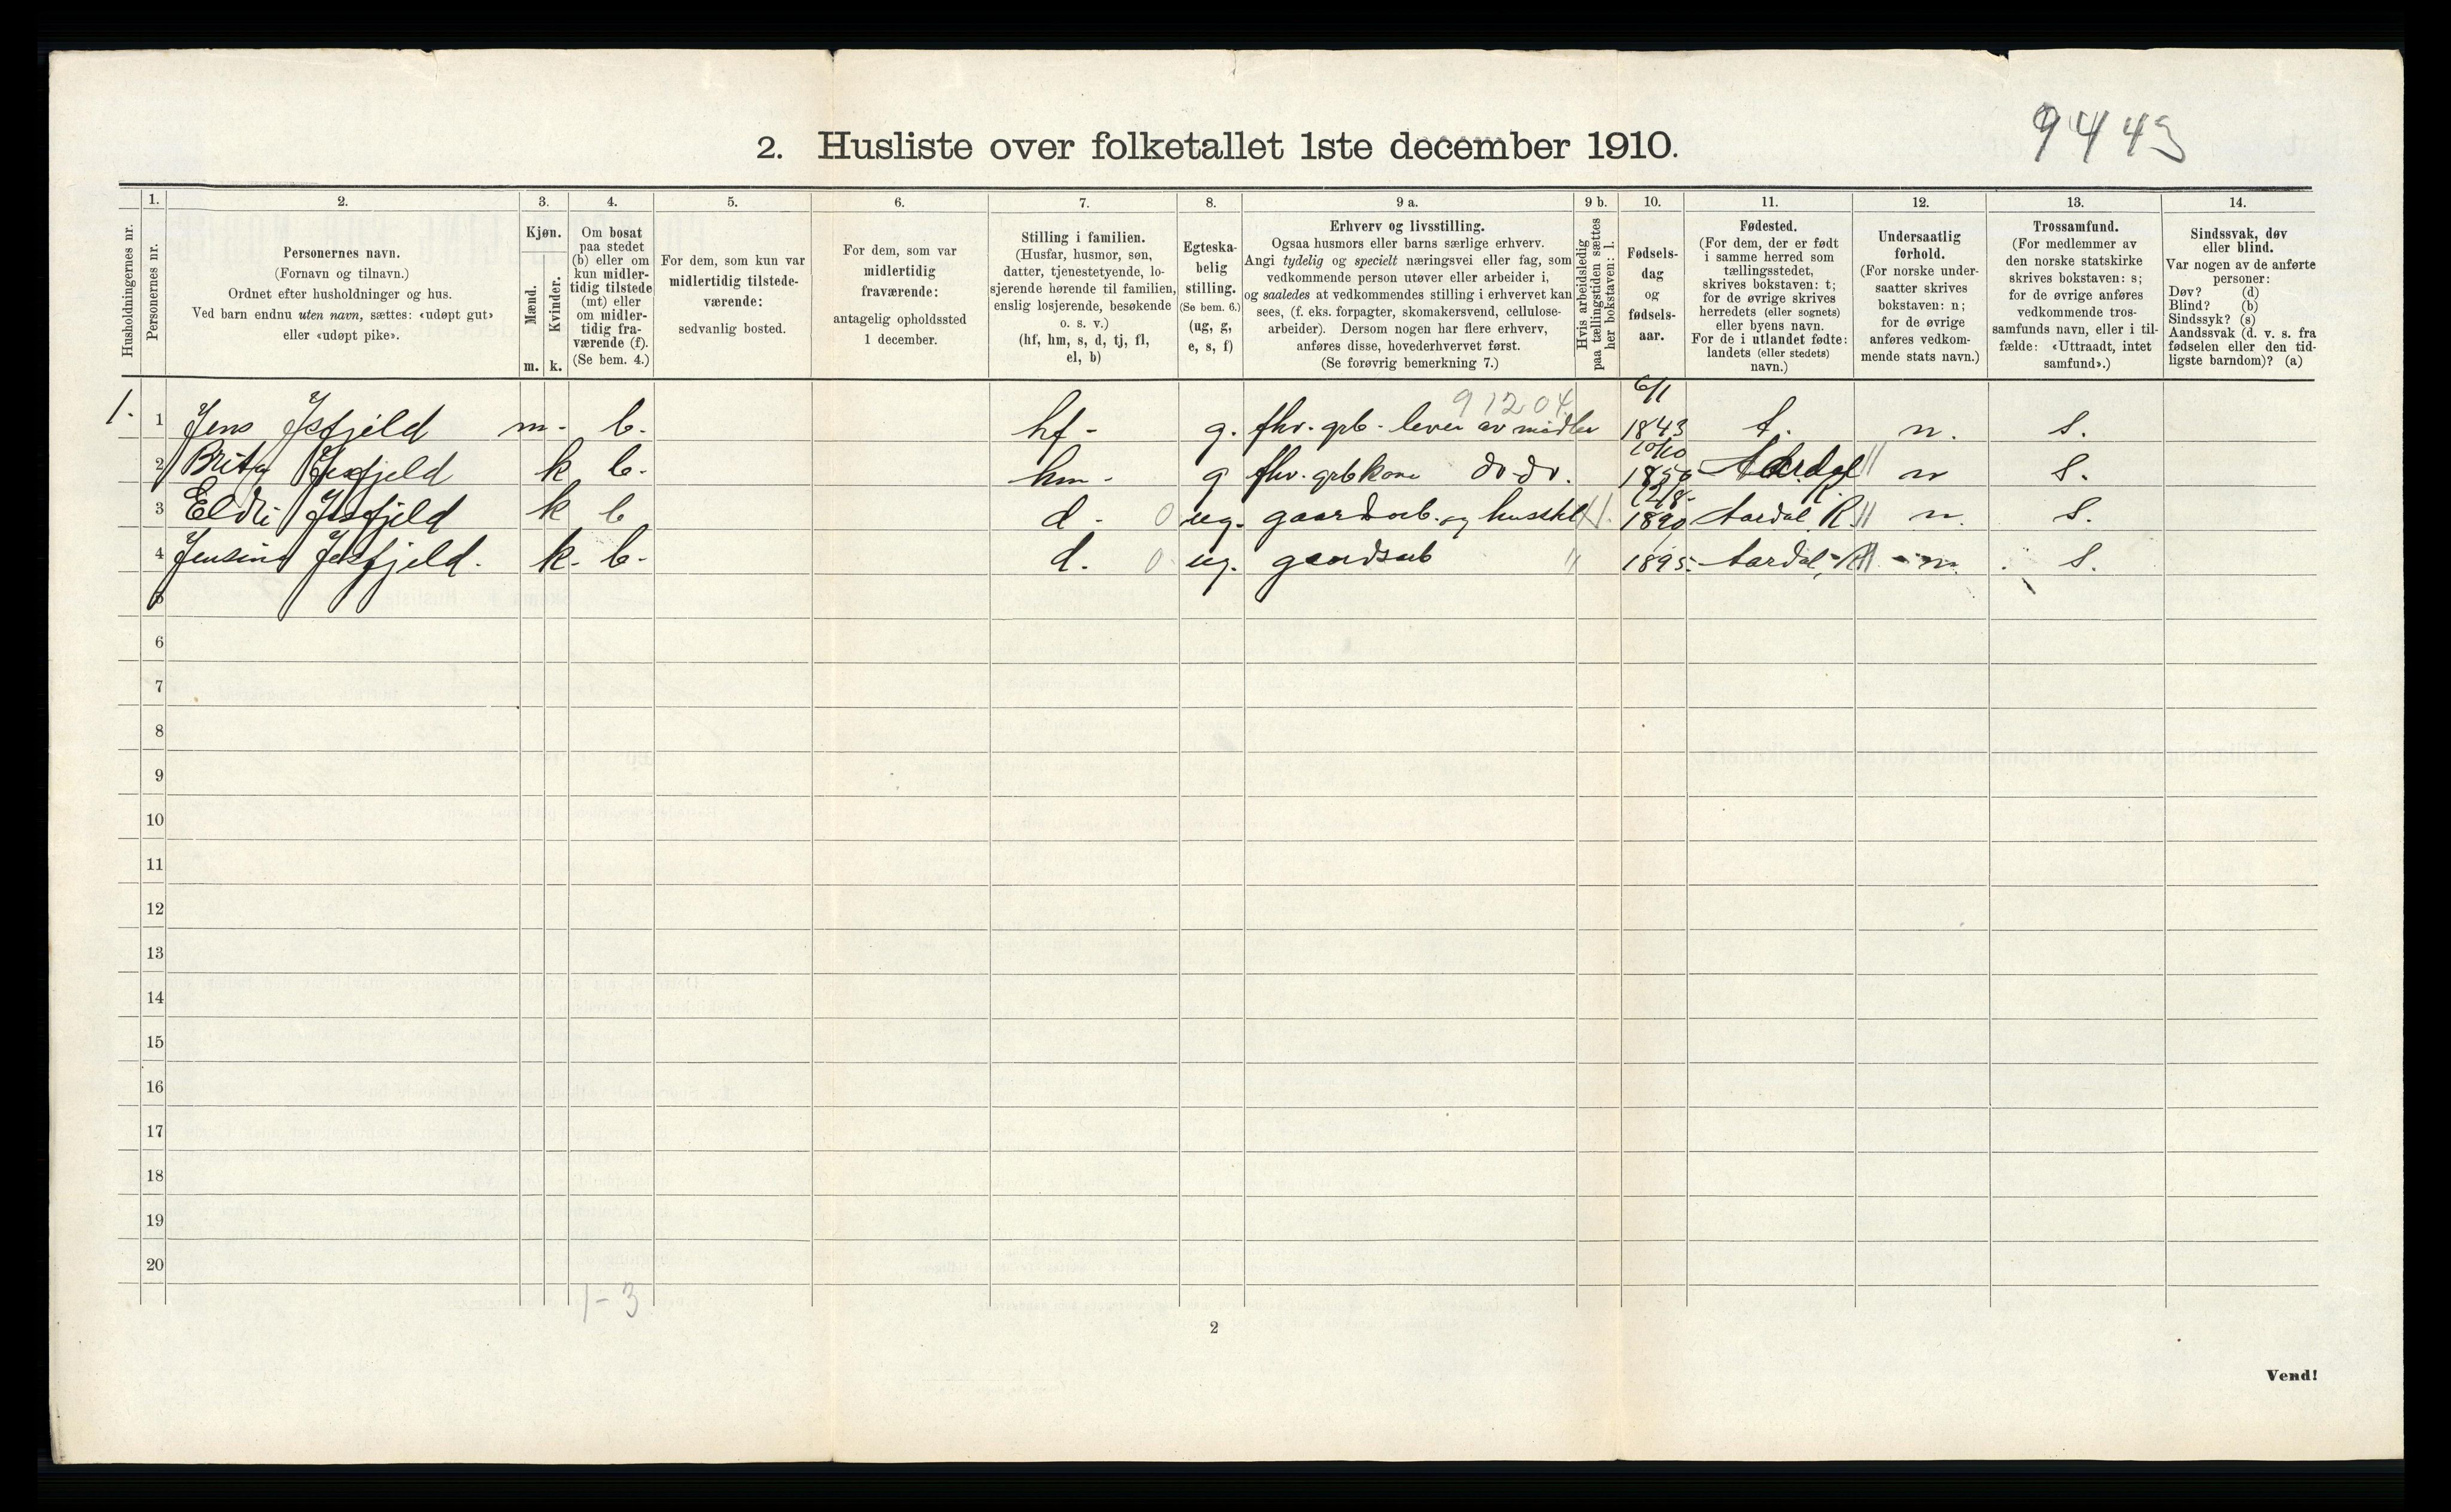 9443
2. Husliste over folketallet 1ste december 1910.
Husholdningernes nr.
1.
Personernes nr.
2.
Personernes navn.
(Fornavn og tilnavn.)
Ordnet efter husholdninger og hus.
Ved barn endnu uten navn, sættes: «udøpt gut»
eller «udøpt pike».
3.
Kjøn.
Mænd.
Kvinder.
m. k.
4.
Om bosat
paa stedet
(b) eller om
kun midler-
tidig tilstede
(mt) eller
om midler-
tidig fra-
værende (f).
(Se bem. 4.)
5.
For dem, som kun var
midlertidig tilstede-
værende:
sedvanlig bosted.
6.
For dem, som var
midlertidig
fraværende:
antagelig opholdssted
1 december.
7.
Stilling i familien.
(Husfar, husmor, søn,
datter, tjenestetyende, lo-
sjerende hørende til familien,
enslig losjerende, besøkende
o. s. v.)
(hf, hm, s, d, tj, fl,
el, b)
8.
Egteska-
belig
stilling.
(Se bem. 6.)
(ug, g,
e, s, f)
9 a.
Erhverv og livsstilling.
Ogsaa husmors eller barns særlige erhverv.
Angi tydelig og specielt næringsvei eller fag, som
vedkommende person utøver eller arbeider i,
og saaledes at vedkommendes stilling i erhvervet kan
sees, (f. eks. forpagter, skomakersvend, cellulose-
arbeider). Dersom nogen har flere erhverv,
anføres disse, hovederhvervet først.
(Se forøvrig bemerkning 7.)
9 b.
Hvis arbeidsledig
paa tællingstiden sættes
her bokstaven: l.
10.
Fødsels-
dag
og
fødsels-
aar.
11.
Fødested.
(For dem, der er født
i samme herred som
tællingsstedet,
skrives bokstaven: t;
for de øvrige skrives
herredets (eller sognets)
eller byens navn.
For de i utlandet fødte:
landets (eller stedets)
navn.)
12.
Undersaatlig
forhold.
(For norske under-
saatter skrives
bokstaven: n;
for de øvrige
anføres vedkom-
mende stats navn.)
13.
Trossamfund.
(For medlemmer av
den norske statskirke
skrives bokstaven: s;
for de øvrige anføres
vedkommende tros-
samfunds navn, eller i til-
fælde: «Uttraadt, intet
samfund».)
14.
Sindssvak, døv
eller blind.
Var nogen av de anførte
personer:
Døv? (d)
Blind? (b)
Sindssyk? (s)
Aandssvak (d. v. s. fra
fødselen eller den tid-
ligste barndom)? (a)
91204 6/1
1. 1 Jens Isfjeld m- b. hf- g. fhv. grb - lever av midler 1843 t. n. s.
10/10
2 Brita Isfjeld k b- hm- g fhv. grbkone do-do. Aardal n s.
3 Eldri Isfjeld k b d- 0 ug. gaardarb. og husstel 1890 Aardal, R. n. s.
4 Jensine Isfjeld. k- b- d. 0 ug. gaardsarb 1895. Aardal, n. s.
5
6
7
8
9
10
11
12
13
14
15
16
17
18
19
20
1-3
2
Vend!